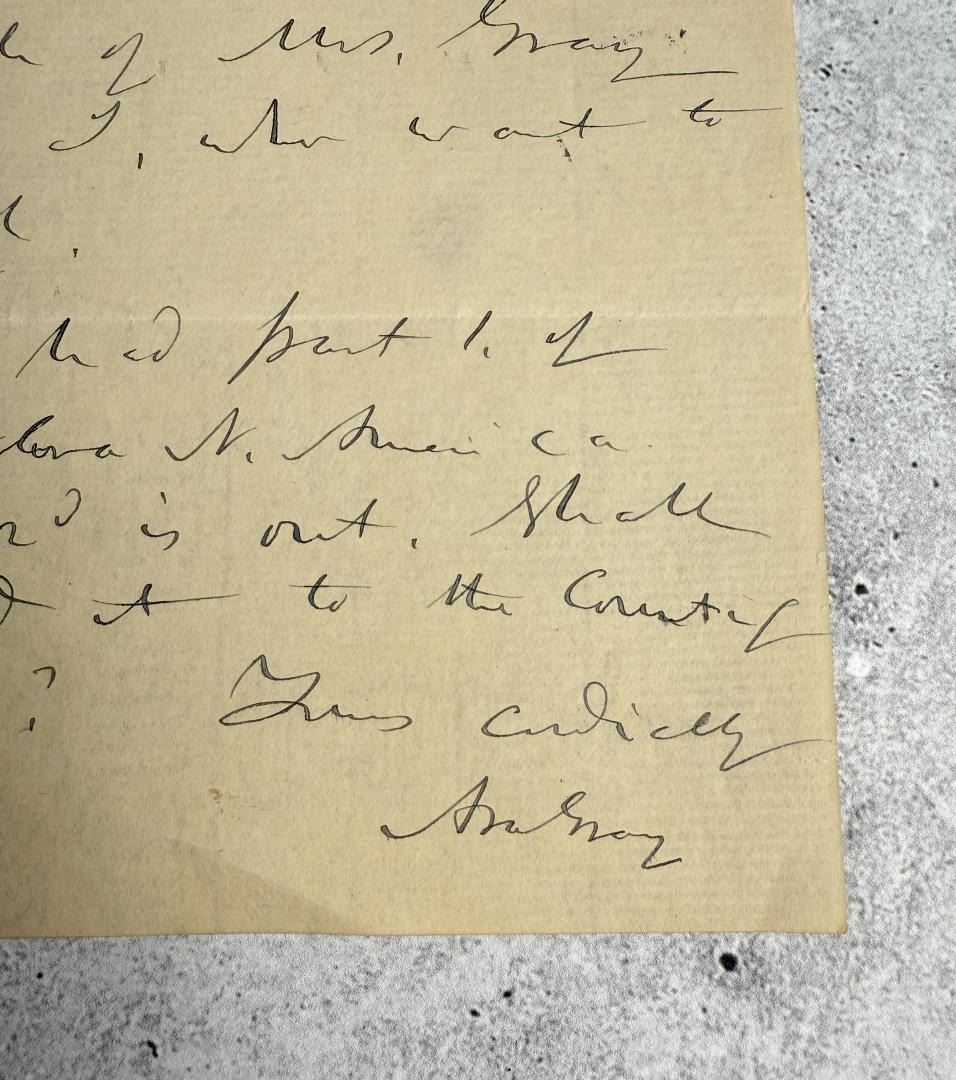 of Mrs. Gray
I, who want to
had part 1. of
Flora N. America
is out. Shall
it to the County
? Yours cordially
Asa Gray